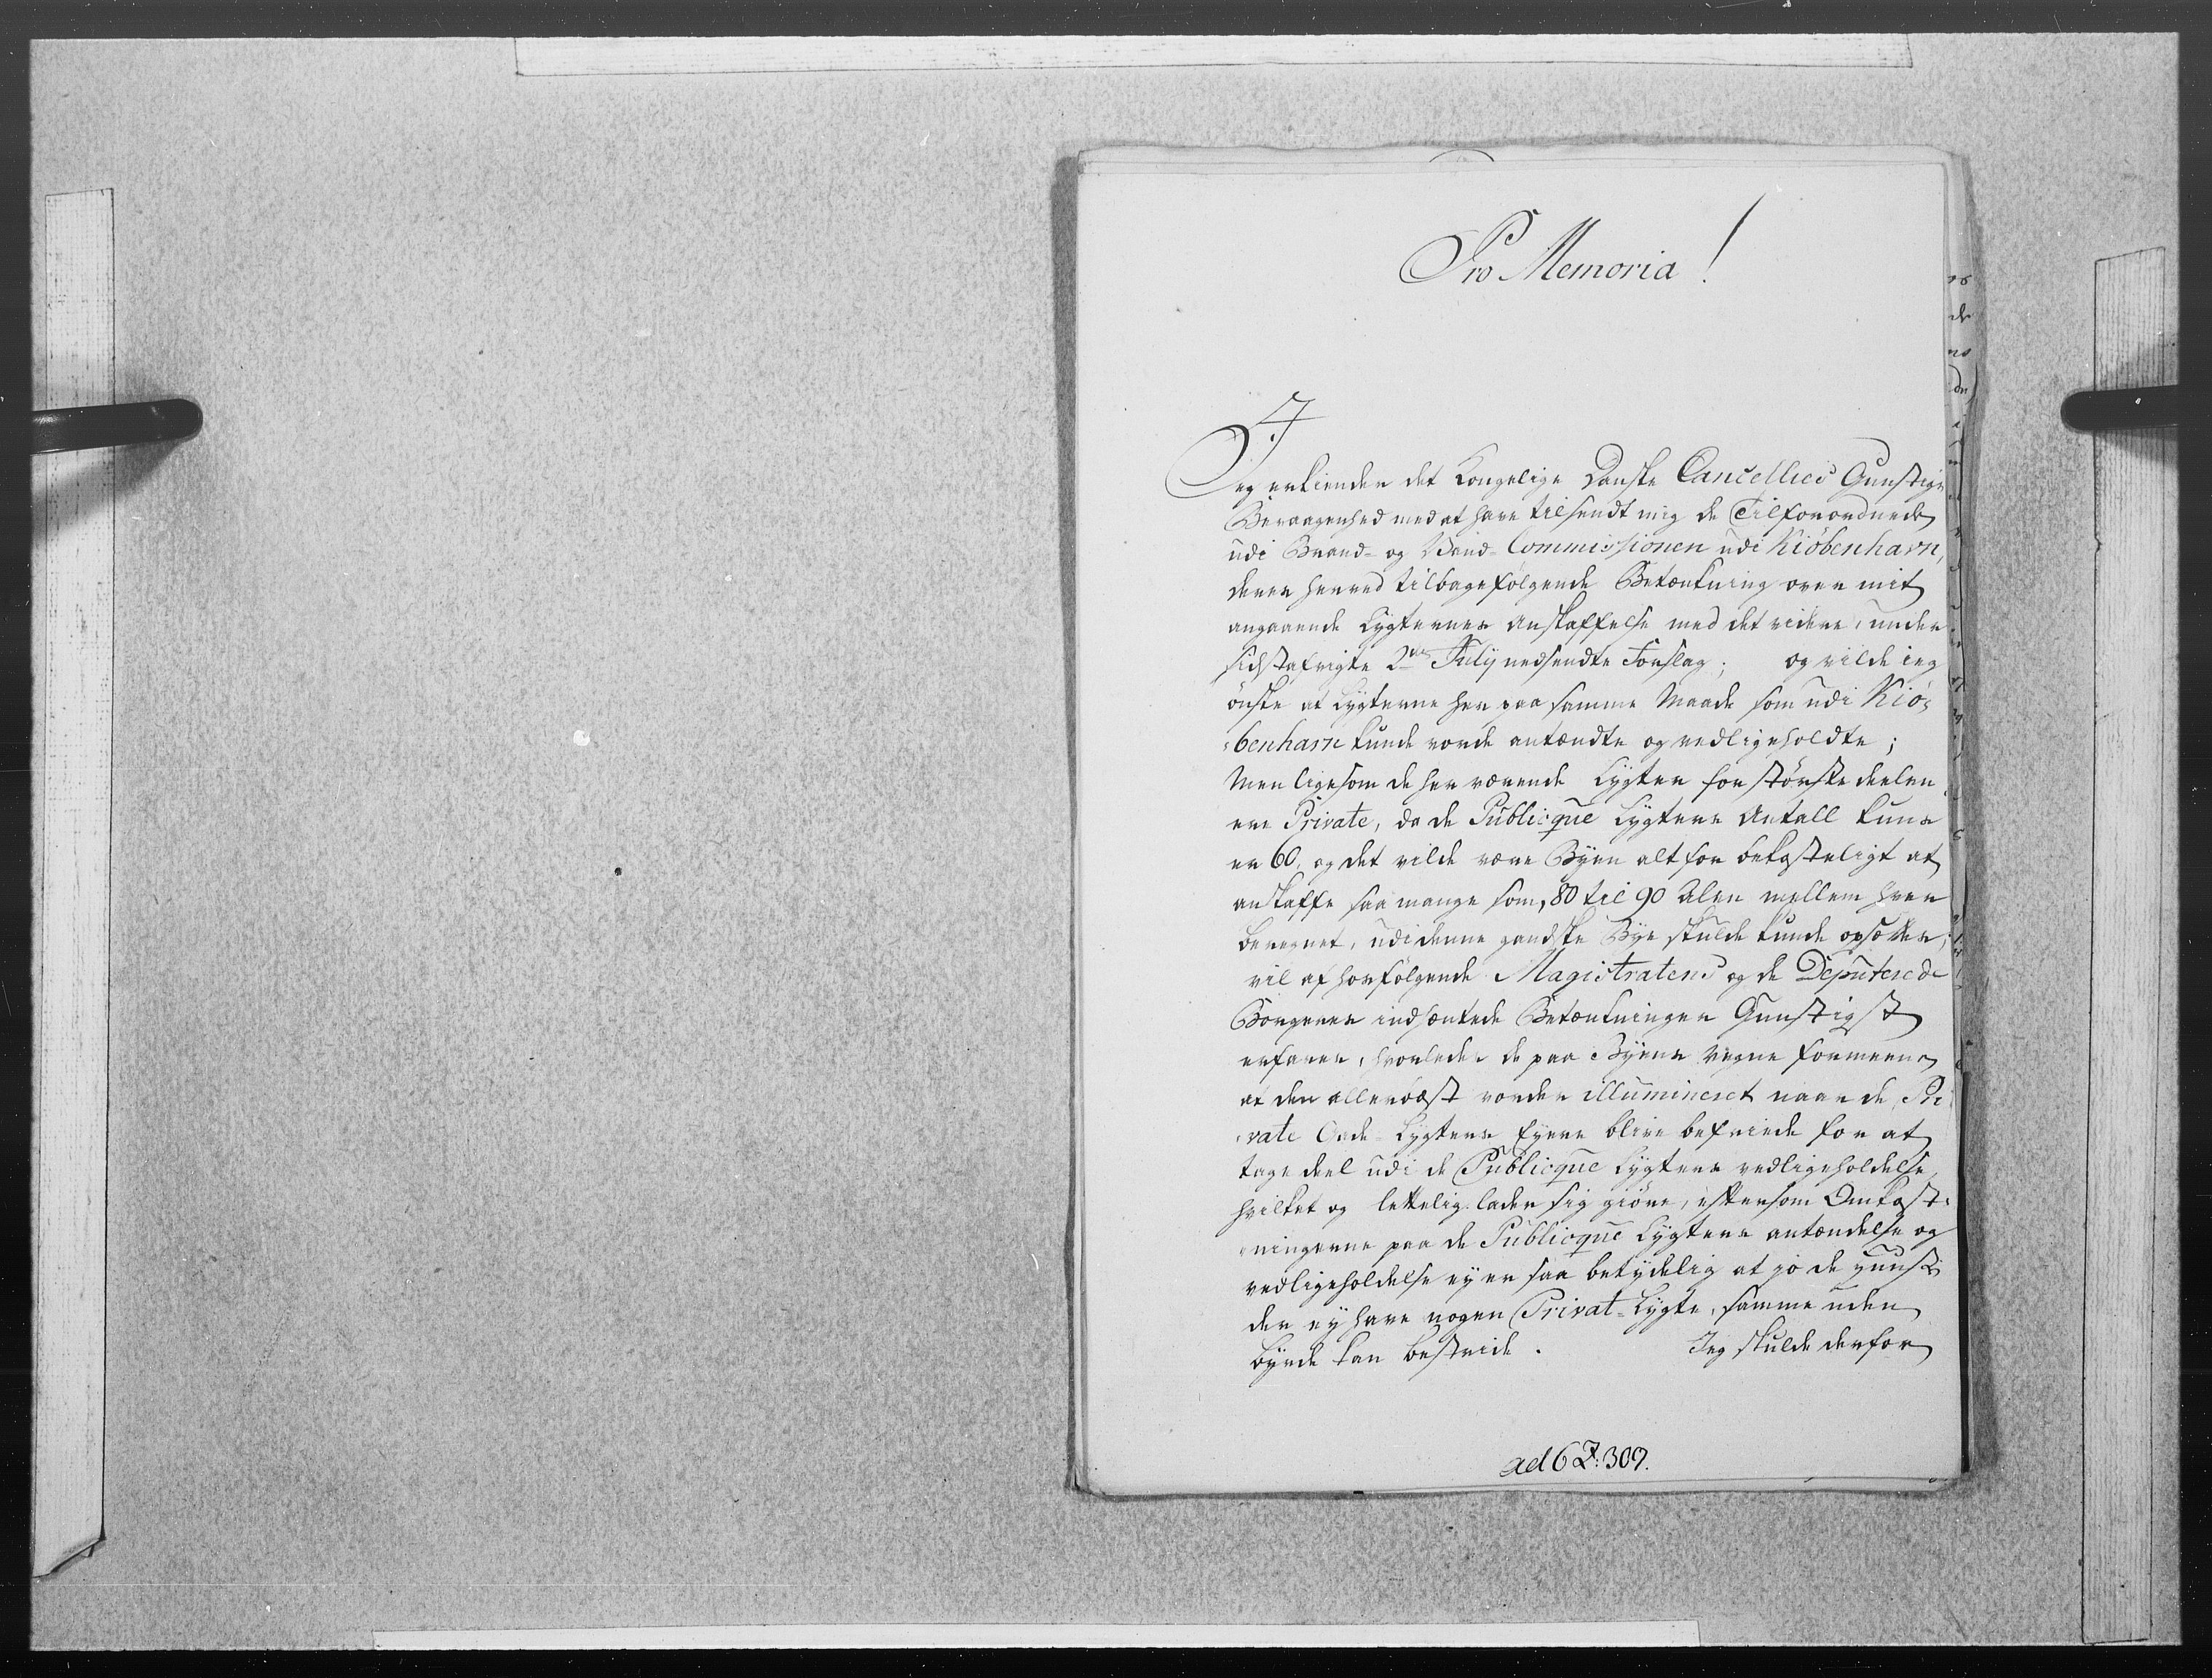 Pro Memoria!
Jeg erkiender det Kongelige Danske Cancellies Gunstige
Bevaagenhed med at have tilsendt mig de Tilforordnede
udi Brand- og Vand-Commissionen udi Kiöbenhavn,
deres herved tilbagefölgende Betænkning over mit
angaaende Lygternes Anskaffelse med det videre, under
sidstafvigte 2den Julij nedsendte Forslag; og vilde ieg
önske at Lygterne her paa samme Maade som udi Kiö-
benhavn kunde vorde antændte og vedligeholdte;
Men ligesom de her værende Lygter for störste deelen
ere Private, da de Publicque Lygters Antall kuns
er 60, og det vilde være Byen alt for bekosteligt at
anskaffe saa mange som, 80 til 90 Alen mellem hver
beregnet, udi denne gandske Bye skulde kunde opsættes;
vil af hosfölgende Magistratens og de Deputerede
Borgeres indhæntede Betænkninger Gunstigst
erfares, hvorledes de paa Byens Vegne formeene
at den allerbæst vorder illumineret naar de Pri
vate Lygters Eyere blive befriede for at
tage deel udi de Publicque Lygters vedligeholdelse
hvilket og lettelig lader sig giöre, eftersom Omkost-
ningerne paa de Publicque Lygters antændelse og
vedligeholdelse ey er saa betydelig at jo de
der ey have nogen Privat-Lygte, samme uden
byrde kan bestride. Jeg skulde derfor